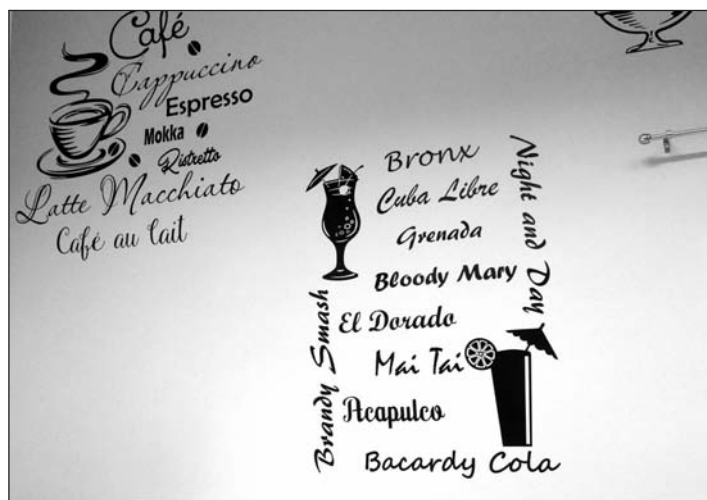 Café
Cappuccino
Espresso
Mokka
Ristretto
Latte Macchiato
Café au lait
Bronx
Cuba Libre
Grenada
Bloody Mary
El Dorado
Mai Tai
Acapulco
Bacardy Cola
Night and Day
Brandy Smash